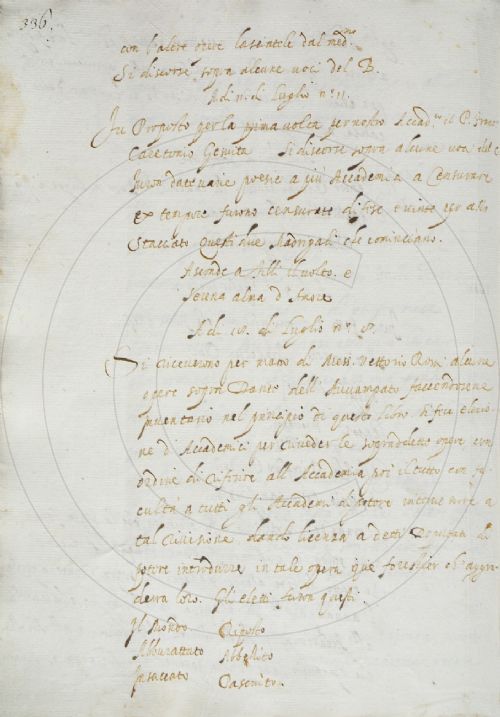 336.
con l'altre opere lasciateli dal med.mo
Si discorse sopra alcune voci del B.
Adì 11. di Luglio n.º 11.
Fu Proposto per la prima volta per nostro Accad.co il P.
Gesuita Si discorse sopra alcune voci del C
furon date varie poesie a più Accademici a Censurare
ex tempore furono censurate difese e vinte per allo
Stacciato Questi due Madrigali che cominciano.
Asconde a Filli il volto. e
Se una alma d'
Adì 18. di Luglio n.º
Si riceverono per mano di Mess. Vettorio Rossi alcune
opere sopra Dante dell' Avvampato facendosene
inventario nel principio di questo libro. Si fece elezio
ne d' Accademici per riveder le sopraddette opere con
ordine di riferire all' Accademia poi il tutto con fa
cultà a tutti gli Accademici di potere intervenire a
tal revisione dando licenza a detti Deputati di
potere introdurre in tale opera que forestieri ch'aggra
derà loro. Gli eletti furon questi.
Il Mondo Riposto
Abburattato
Insaccato